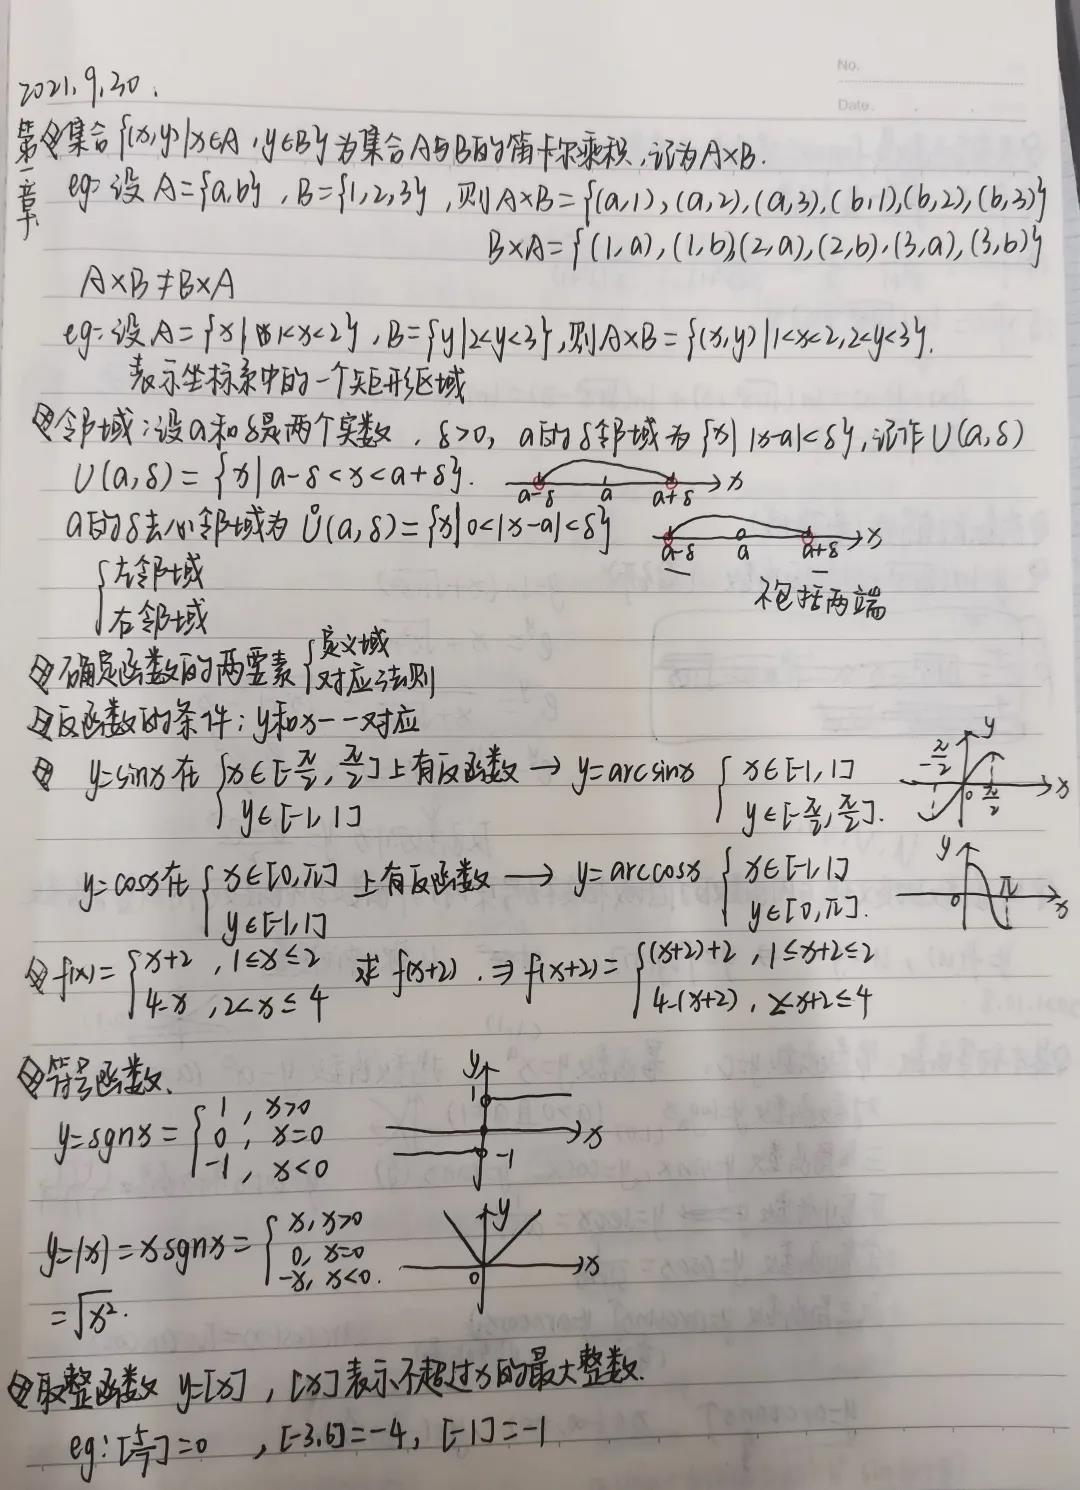 No.
Date.
2021.9.30.
第一章
集合{(x,y)|x∈A,y∈B}为集合A与B的笛卡尔乘积,记为A×B.
eg:设A={a,b},B={1,2,3},则A×B={(a,1),(a,2),(a,3),(b,1),(b,2),(b,3)}
B×A={(1,a),(1,b),(2,a),(2,b),(3,a),(3,b)}
A×B≠B×A
eg:设A={x|1<x<2},B={y|2<y<3},则A×B={(x,y)|1<x<2,2<y<3}.
表示坐标系中的一个矩形区域
邻域:设a和δ是两个实数,δ>0,a的δ邻域为{x||x-a|<δ},记作U(a,δ)
U(a,δ)={x|a-δ<x<a+δ}. a-δ a a+δ x
a的δ去心邻域为Ů(a,δ)={x|0<|x-a|<δ} a-δ a a+δ x
左邻域
右邻域
不包括两端
确定函数的两要素{定义域
对应法则
反函数的条件:y和x一一对应
y=sinx在{x∈[-π/2,π/2]上有反函数→y=arcsinx{x∈[-1,1]
y∈[-1,1] y∈[-π/2,π/2].
y -π/2 0 π/2 x
y=cosx在{x∈[0,π]上有反函数→y=arccosx{x∈[-1,1]
y∈[-1,1] y∈[0,π].
y 0 π x
f(x)={x+2,1≤x≤2 求f(x+2).⇒f(x+2)={(x+2)+2,1≤x+2≤2
4-x,2<x≤4 4-(x+2),2<x+2≤4
符号函数.
y=sgnx={1,x>0
0,x=0
-1,x<0
y 1 x -1
y=|x|=xsgnx={x,x>0
0,x=0
-x,x<0.
=√x².
y 0 x
取整函数y=[x],[x]表示不超过x的最大整数.
eg:[5/7]=0,[-3.6]=-4,[-1]=-1